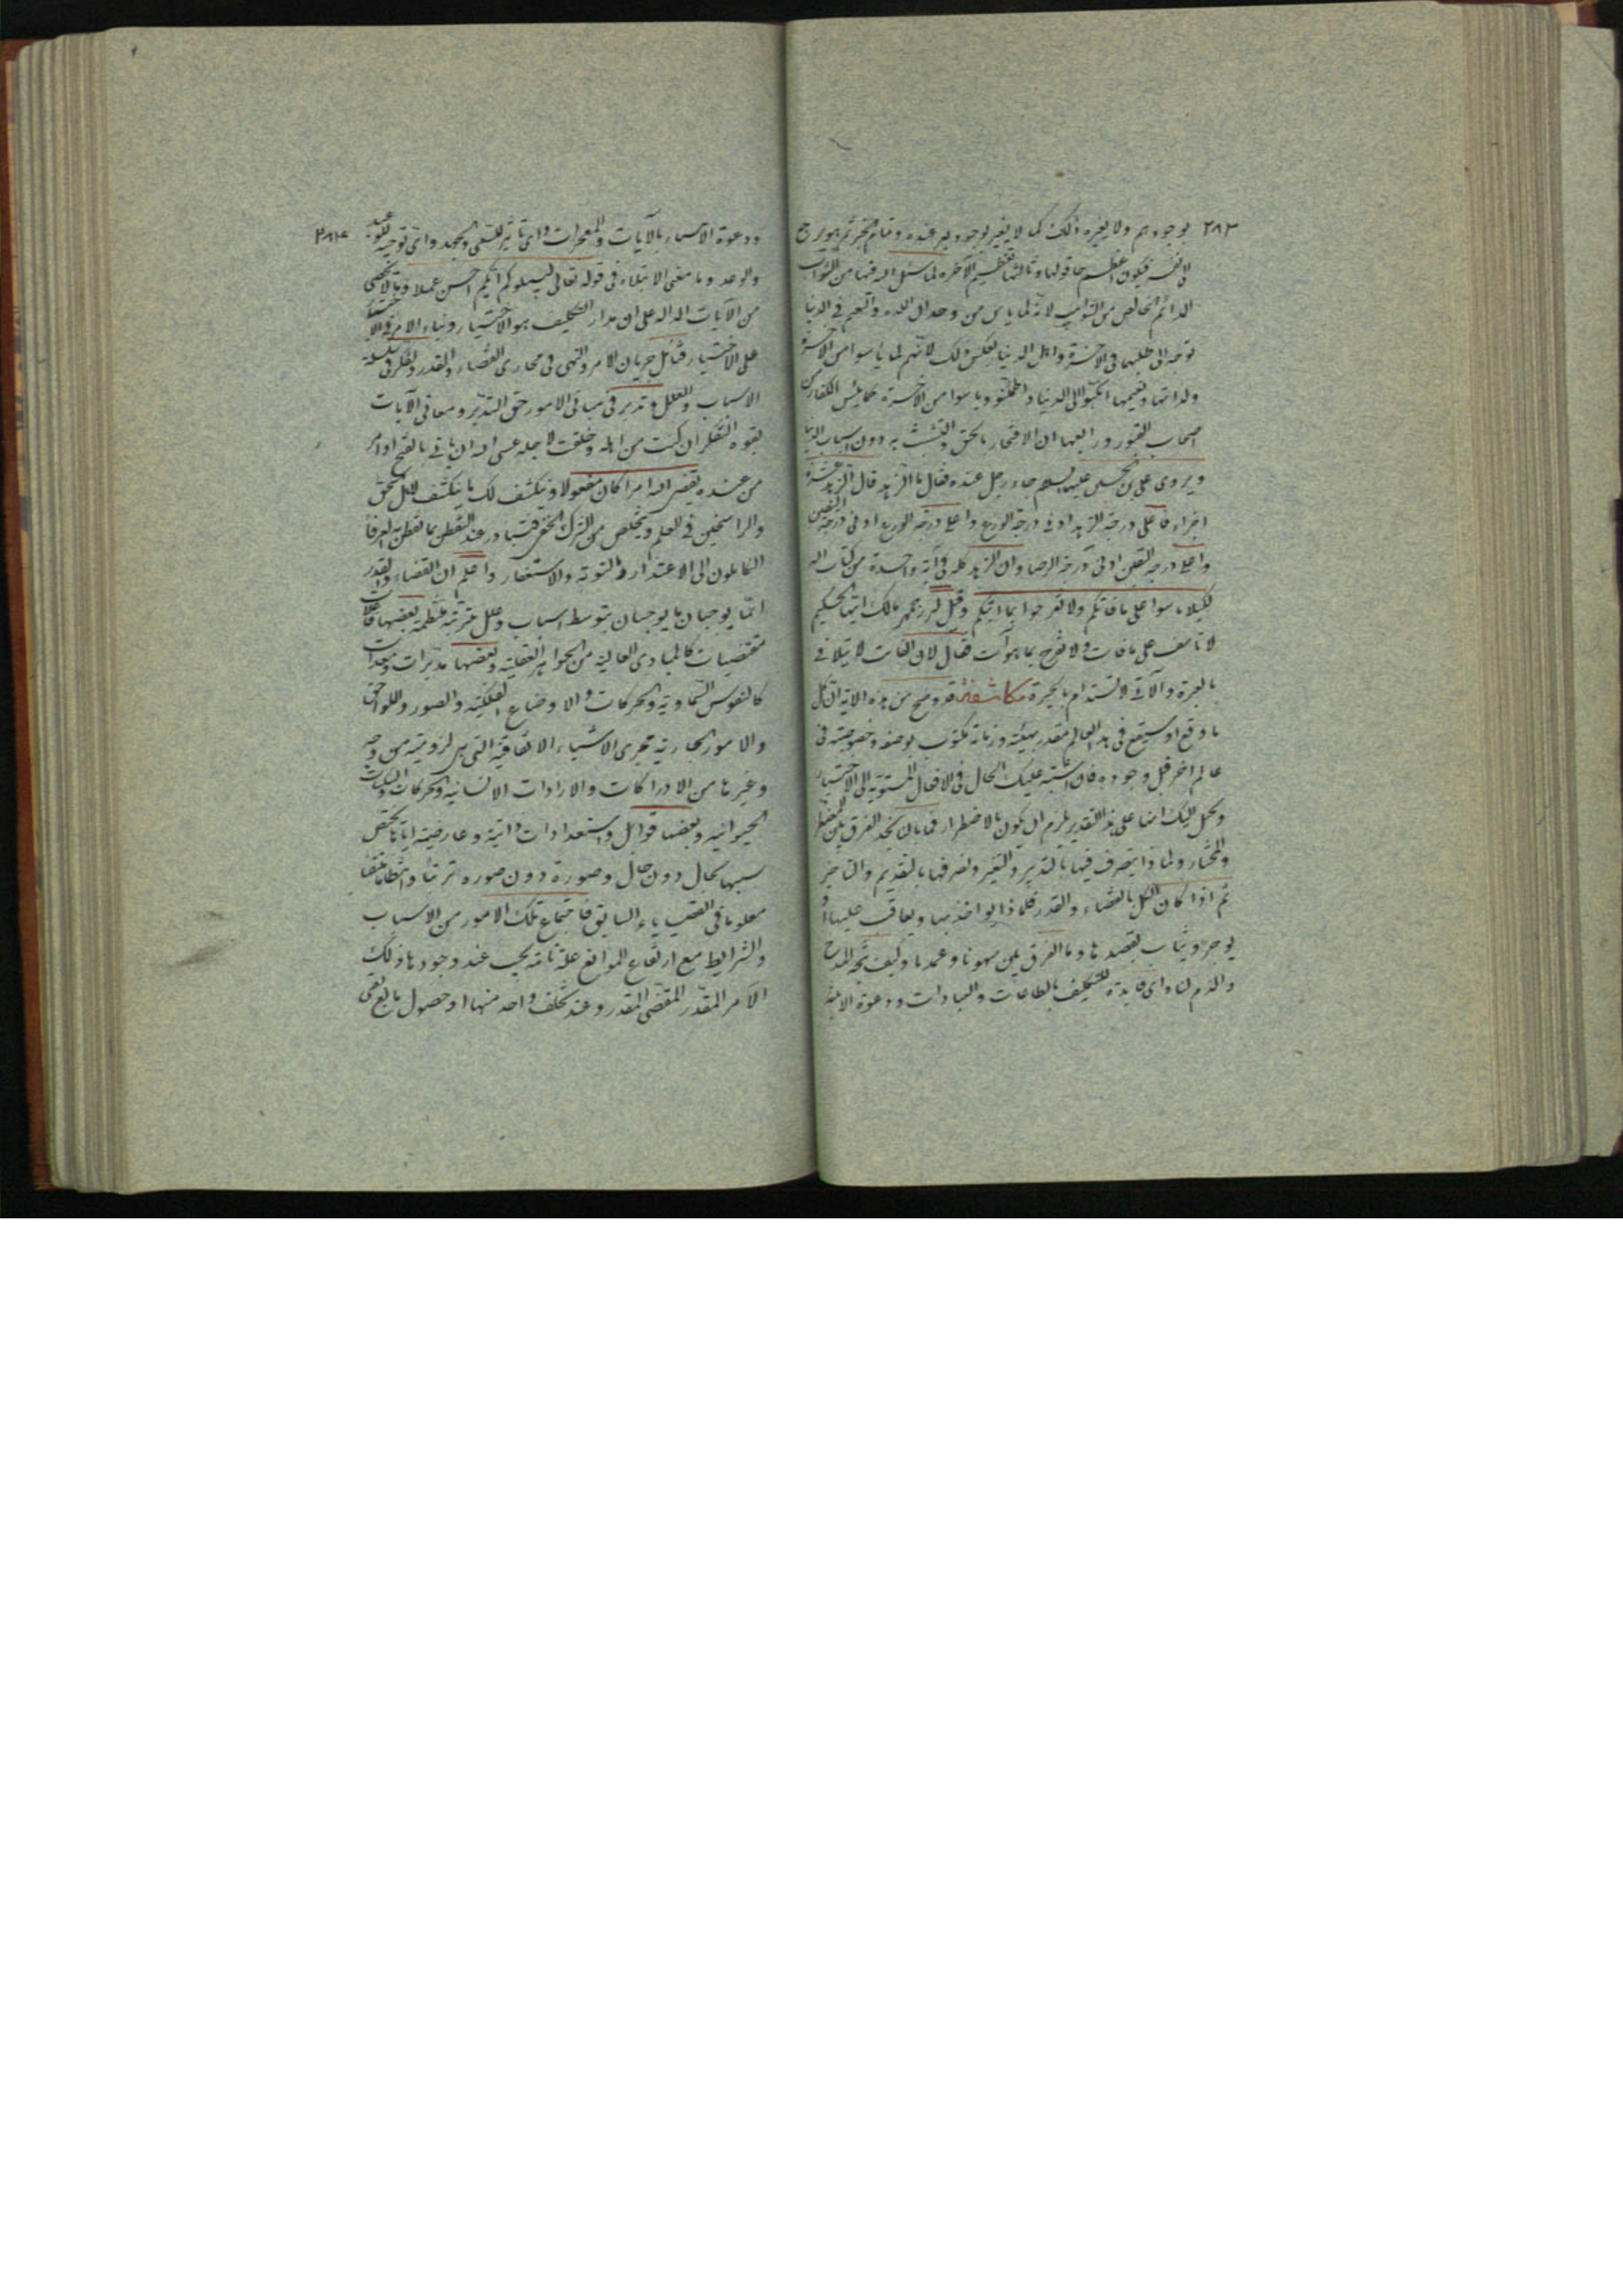 ٢٨٣
بوجودهم ولا يغيره ذلك كما لا يغير بوجود غيره عنده
لأنفس فيكون اعظم وثالثها تعظيم الآخرة لما سئل الله فيها من الثواب
الدائم الخالص من الشوائب لانه لما يأس من وجدان اللذه والنعيم في الدنيا
توجه الى طلبهما في الآخرة واهل الدنيا بعكس ذلك لانهم لما يأسوا من الآخرة
ولذاتها ونعيمها انكبوا الى الدنيا واطمأنوا ويأسوا من الآخرة كما يئس الكفار من
اصحاب القبور ورابعها ان الافتخار بالحق والتشبث به دون اسباب الدنيا
ويروى على بن الحسين عليهما السلام جاء رجل عنده فقال ما الزهد قال الزهد عشرة
اجزاء فاعلى درجة الزهد ادنى درجة الورع واعلى درجة الورع ادنى درجة اليقين
واعلى درجة اليقين ادنى درجة الرضا وان الزهد كله في آية واحدة من كتاب الله
لكيلا تاسوا على ما فاتكم ولا تفرحوا بما اتيكم وقيل لبزرجمهر مالك ايها الحكيم
لا تأسف على ما فات ولا تفرح بما هو آت فقال لان الفائت لا يتلافى
بالعبرة والآتى لا يستدام بالحبرة مكاشفة قد وضح من هذه الآية ان كل
ما وقع او سيقع في هذا العالم مقدر بهيئته وزمانه مكتوب بوصفه وخصوصيته في
عالم اخر قبل وجوده فان اشتبه عليك الحال في الافعال المنسوبة الى الاختيار
ويخيل اليك انها على هذا التقدير يلزم ان يكون بالاضطرار فما بالنا نجد الفرق بين المضطر
والمختار ولماذا يتصرف فيها بالتدبير والتغير ونصرفها بالتقديم والتأخير
ثم اذا كان الكل بالقضاء والقدر فلماذا يواخذ بها ويعاقب عليها او
يوجر ويثاب بقصدها وما الفرق بين سهونا وعمدنا وكيف يتجه المدح
والذم لنا واى فايدة للتكليف بالطاعات والعبادات ودعوة الانبياء
٢٨٤
ودعوة الانبياء بالآيات والمعجزات واى تاثير للسعى والجهد واى توجيه للوعيد
والوعد وما معنى الابتلاء في قوله تعالى ليبلوكم ايكم احسن عملا وما لا يحصى
من الآيات الدالة على ان مدار التكليف هو الاختيار وبناء الامر
على الاختيار فتأمل جريان الامر والنهى في مجارى القضاء والقدر وانظر في سلسلة
الاسباب والعلل وتدبر في مبانى الامور حق التدبر ومعانى الآيات
بقوه التفكر ان كنت من اهله وخلقت لاجله عسى الله ان ياتى بالفتح او امر
من عنده يقضى الله امرا كان مفعولا وينكشف لك ما ينكشف لاهل الحق
والراسخين في العلم ويتخلص من الشرك الخفى فتبادر عند التفطن بما تفطن به العرفاء
الكاملون الى الاعتذار والتوبة والاستغفار واعلم ان القضاء والقدر
انما يوجبان ما يوجبان بتوسط اسباب وعلل مترتبة منتظمة بعضها فاعلات
مقتضيات كالمبادى العالية من الجواهر العقلية وبعضها مدبرات ومعدات
كالنفوس السماوية والحركات والاوضاع الفلكية والصور واللواحق
والامور الجارية مجرى الاشياء الاتفاقية التى هى لزومية من وجه
وغيرها من الادراكات والارادات الانسانية والحركات والسكنات
الحيوانيه وبعضها قوابل واستعدادات ذاتية وعارضية انما يختص
سببها بحال دون حال وصورة دون صوره ترتبا وانتظاما متقنا
معلوما في القضاء السابق فاجتماع تلك الامور من الاسباب
والشرايط مع ارتفاع الموانع علة تامة يجب عند وجودها ذلك
الامر المقدر المقضى المقدر وعند تخلف واحد منها او حصول مانع بقى